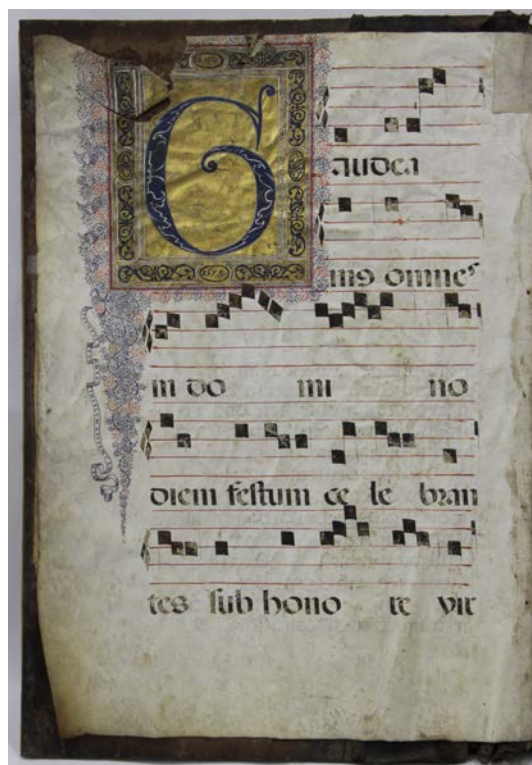 G audea
mo omnes
in do mi no
diem festum ce le bran
tes sub hono re vir